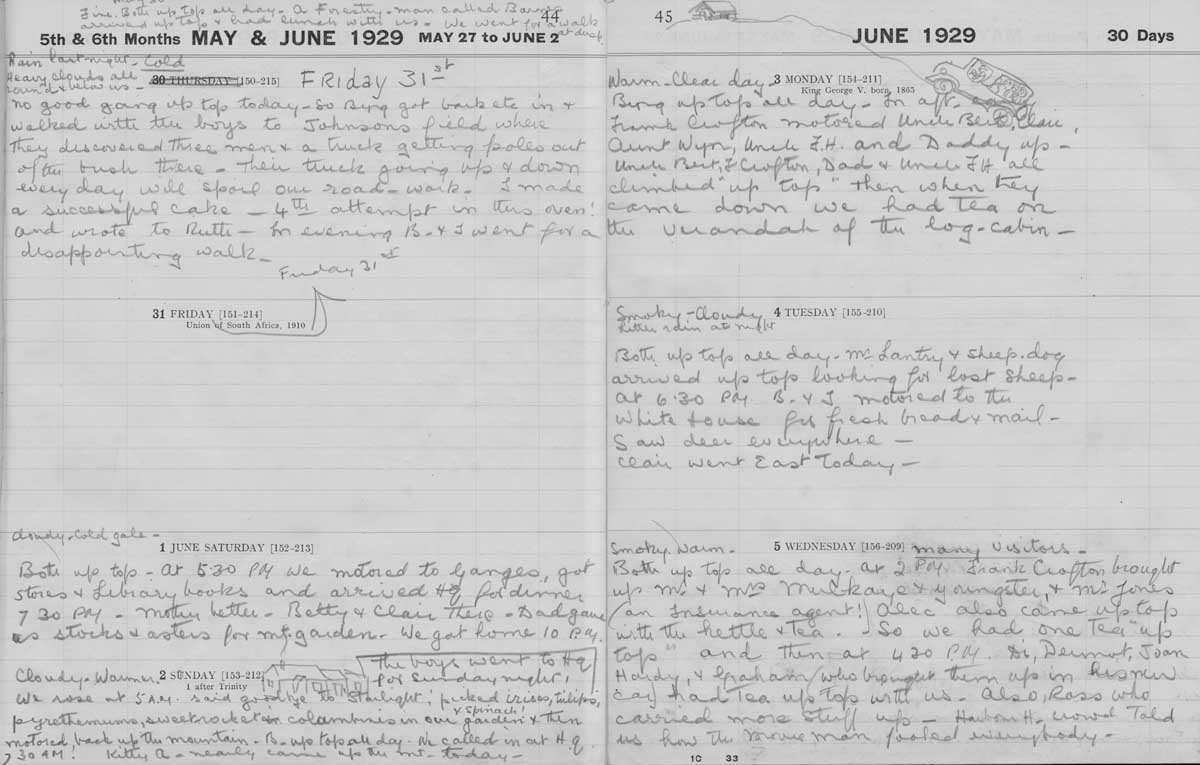 Fine. Both up top all day - A Forestry - man called Barnes
arrived up top & had lunch with us - We went for a walk
at dusk
44
5th & 6th Months MAY & JUNE 1929 MAY 27 to JUNE 2
Rain last night - Cold
Heavy clouds all
round & below us -
30 THURSDAY [150-215]
Friday 31st
no good going up top today - So Byng got bark etc in &
walked with the boys to Johnsons field where
they discovered three men & a truck getting poles out
of the bush there - Their truck going up & down
every day will spoil our road - work - I made
a successful cake - 4th attempt in this oven!
and wrote to Ruth - In evening B. & I went for a
disappointing walk -
Friday 31st
31 FRIDAY [151-214]
Union of South Africa, 1910
Cloudy - Cold gale -
1 JUNE SATURDAY [152-213]
Both up top - At 5 30 PM we motored to Ganges, got
stores & Library books and arrived HQ for dinner
7 30 PM - mother better - Betty & Clair there - Dad gave
us stocks & asters for mt. garden - We got home 10 P.M.
Cloudy - Warmer
2 SUNDAY [153-212]
1 after Trinity
The boys went to HQ
for Sunday night!
We rose at 5 A.M. said goodbye to Starlight; picked irises, tulips,
& spinach!
pyrethemums, sweet rocket & columbines in our garden & then
motored back up the mountain - B - up top all day. We called in at H.Q.
7 30 AM. Kitty A - nearly came up the mt - today -
45
JUNE 1929 30 Days
Warm - Clear day
3 MONDAY [154-211]
King George V. born, 1865
Byng up top all day - In aft -
Frank Crofton motored Uncle Bert, Clair,
Aunt Wyn, Uncle F.H. and Daddy up -
Uncle Bert, F Crofton, Dad & Uncle F.H. all
climbed "up top" then when they
came down we had tea on
the verandah of the log-cabin -
Smoky - Cloudy
4 TUESDAY [155-210]
little rain at night
Both up top all day - Mr Lantry & sheep-dog
arrived up top looking for lost sheep -
at 6.30 PM B. & I motored to the
White House for fresh bread & mail -
Saw deer everywhere -
Clair went East today -
Smoky Warm -
5 WEDNESDAY [156-209]
many visitors -
Both up top all day - at 2 PM Frank Crofton brought
up Mr & Mrs Muckaye & youngster, & Mr Jones
(an Insurance agent!) Alec also came up top
with the kettle & tea. - So we had one tea "up
top" and then at 4 30 PM. Ds, Dermot, Joan
Hardy, & Graham (who brought them up in his new
car) had tea up top with us - Also, Ross who
carried more stuff up - Harbour H - crowd told
us how the movie man fooled everybody -
10 33